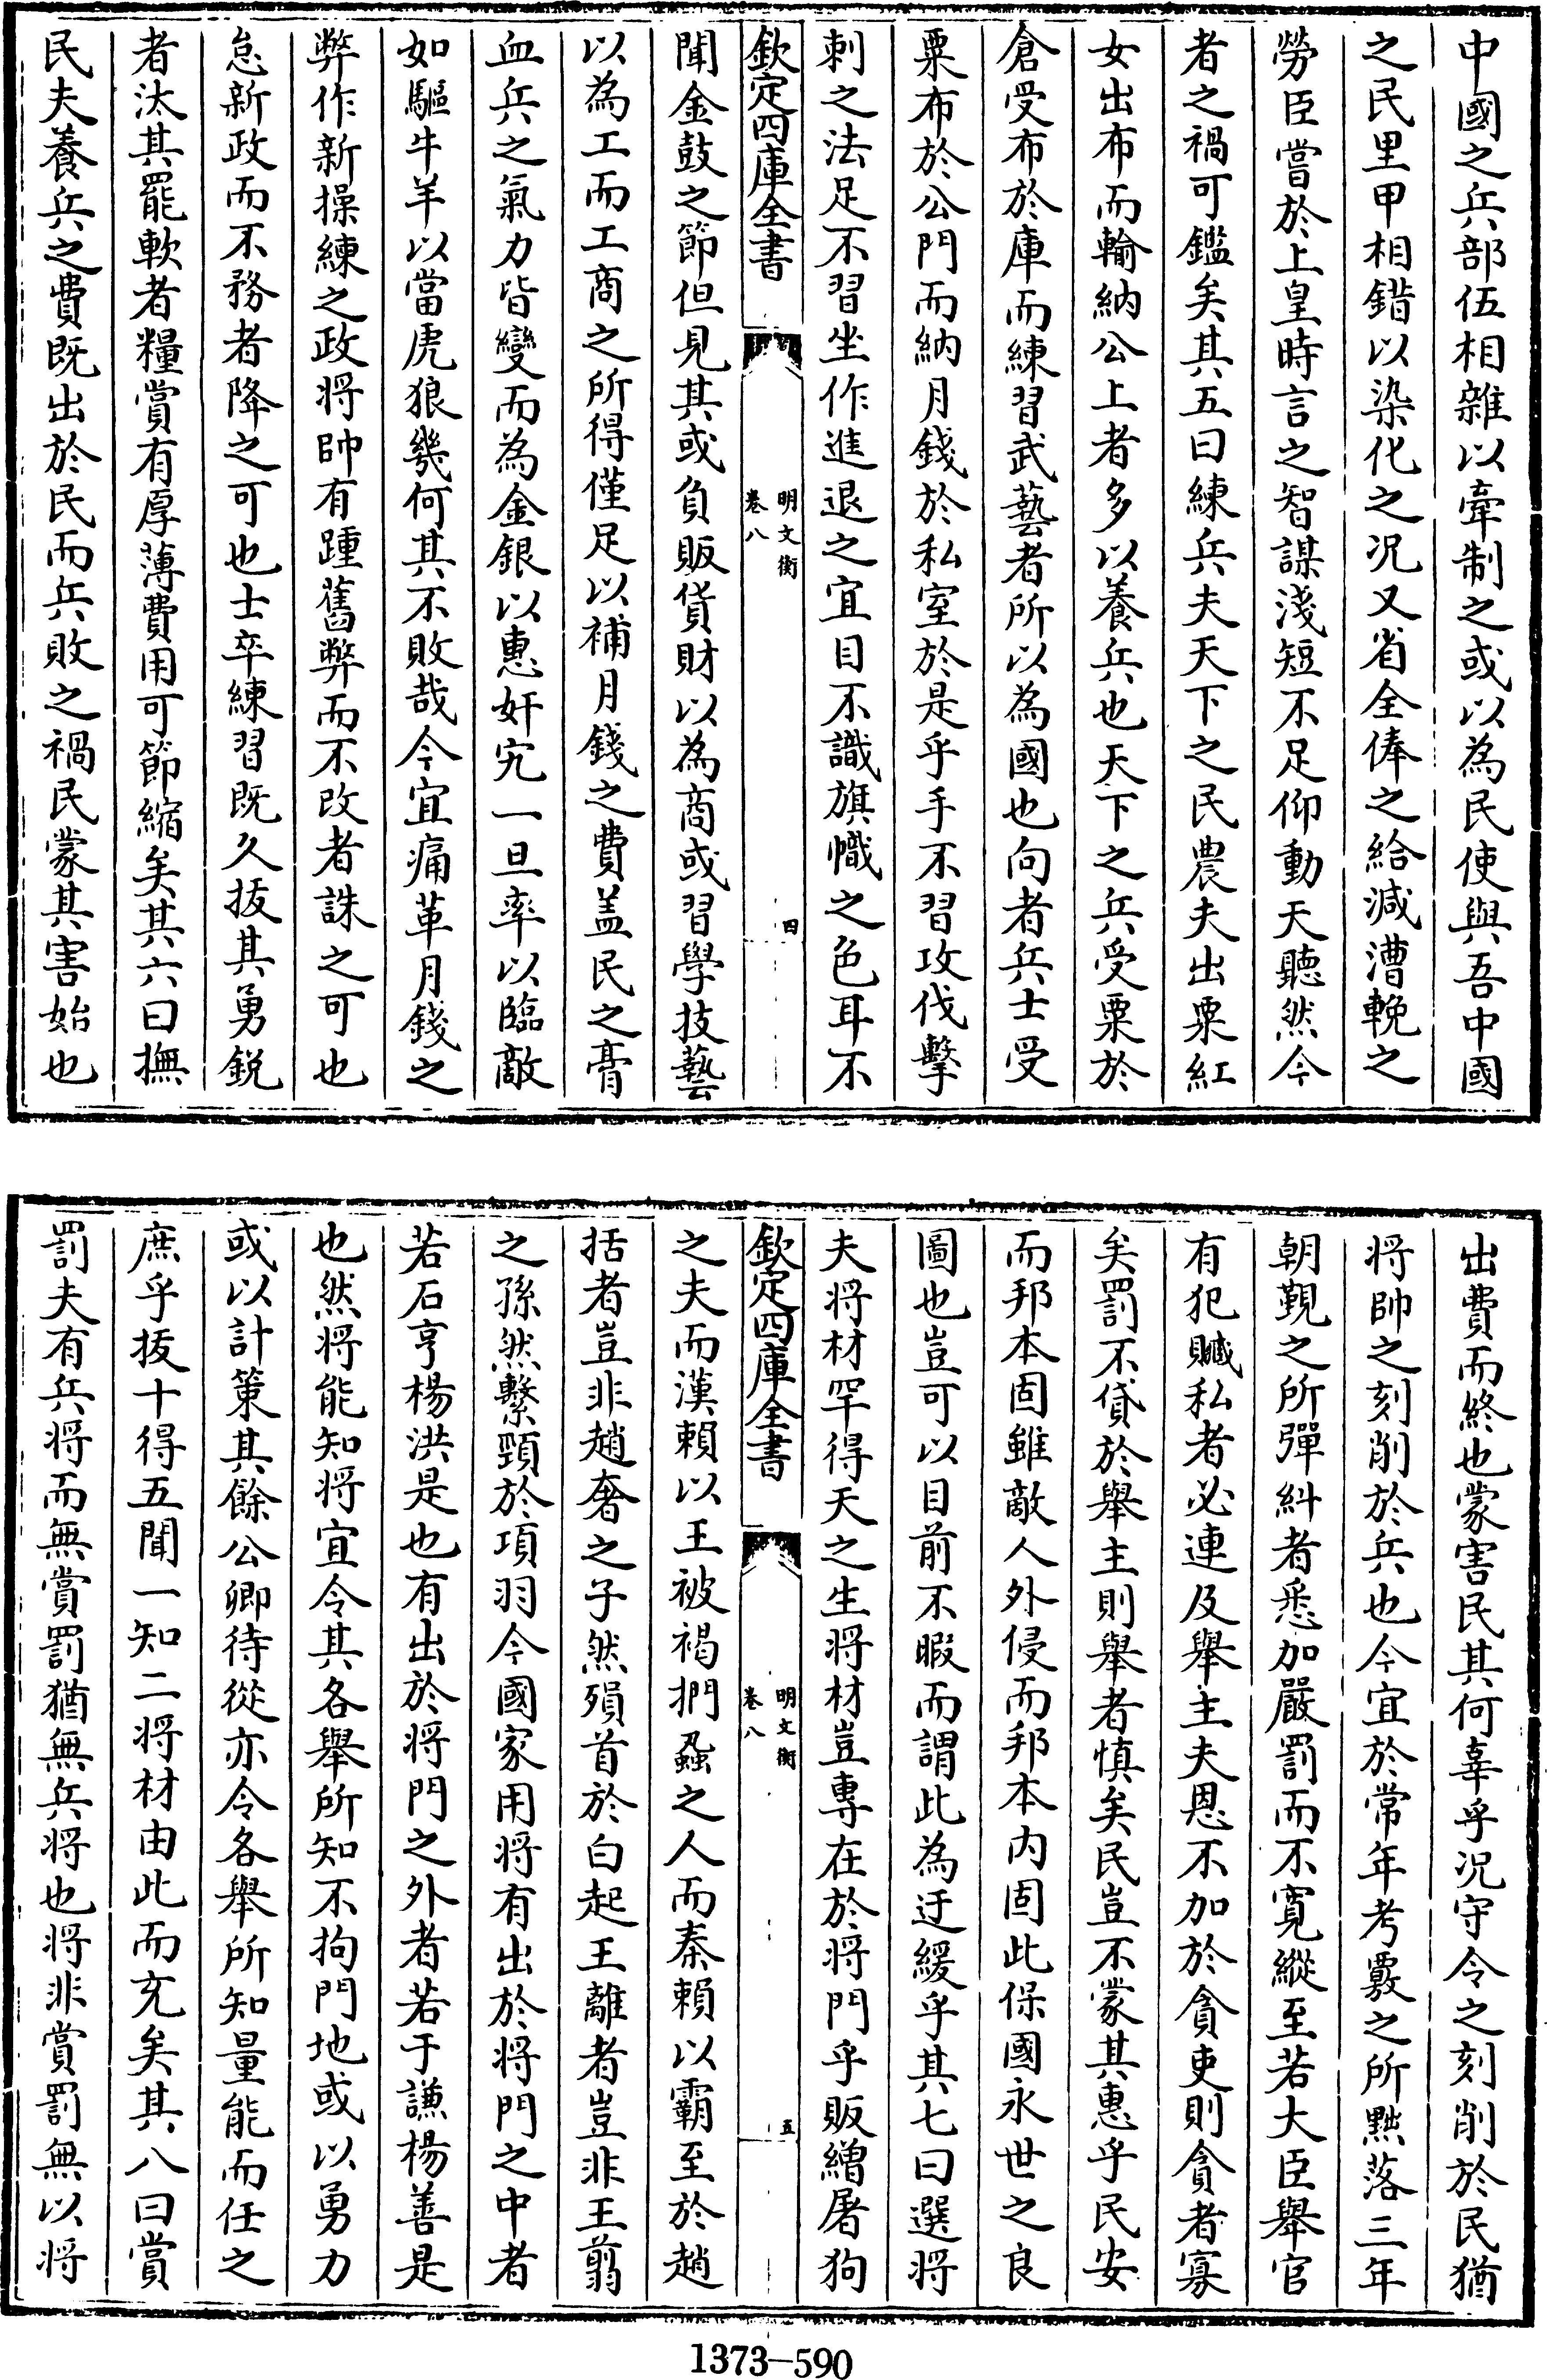 中國之兵部伍相雜以牽制之或以為民使與吾中國
之民里甲相錯以染化之况又省全俸之給減漕輓之
勞臣嘗於上皇時言之智謀淺短不足仰動天聽然今
者之禍可鑑矣其五曰練兵夫天下之民農夫出粟紅
女出布而輸納公上者多以養兵也天下之兵受粟於
倉受布於庫而練習武藝者所以為國也向者兵士受
粟布於公門而納月錢於私室於是乎手不習攻伐擊
刺之法足不習坐作進退之宜目不識旗幟之色耳不
欽定四庫全書
明文衡
卷八
四
聞金鼓之節但見其或負販貨財以為商或習學技藝
以為工而工商之所得僅足以補月錢之費盖民之膏
血兵之氣力皆變而為金銀以惠奸宄一旦率以臨敵
如驅牛羊以當虎狼幾何其不敗哉今宜痛革月錢之
弊作新操練之政将帥有踵舊弊而不改者誅之可也
怠新政而不務者降之可也士卒練習既久拔其勇鋭
者汰其罷軟者糧賞有厚薄費用可節縮矣其六曰撫
民夫養兵之費既出於民而兵敗之禍民蒙其害始也
出費而終也蒙害民其何辜乎况守令之刻削於民猶
将帥之刻削於兵也今宜於常年考覈之所黜落三年
朝覲之所彈糾者悉加嚴罰而不寬縱至若大臣舉官
有犯贓私者必連及舉主夫恩不加於貪吏則貪者寡
矣罰不貸於舉主則舉者慎矣民豈不蒙其惠乎民安
而邦本固雖敵人外侵而邦本内固此保國永世之良
圖也豈可以目前不暇而謂此為迂緩乎其七曰選将
夫将材罕得天之生将材豈專在於将門乎販繒屠狗
欽定四庫全書
明文衡
卷八
五
之夫而漢賴以王被褐捫蝨之人而秦賴以霸至於趙
括者豈非趙奢之子然殞首於白起王離者豈非王翦
之孫然繫頸於項羽今國家用将有出於将門之中者
若石亨楊洪是也有出於将門之外者若于謙楊善是
也然将能知将宜令其各舉所知不拘門地或以勇力
或以計策其餘公卿侍從亦令各舉所知量能而任之
庶乎拔十得五聞一知二将材由此而充矣其八曰賞
罰夫有兵将而無賞罰猶無兵将也将非賞罰無以将
1373-590